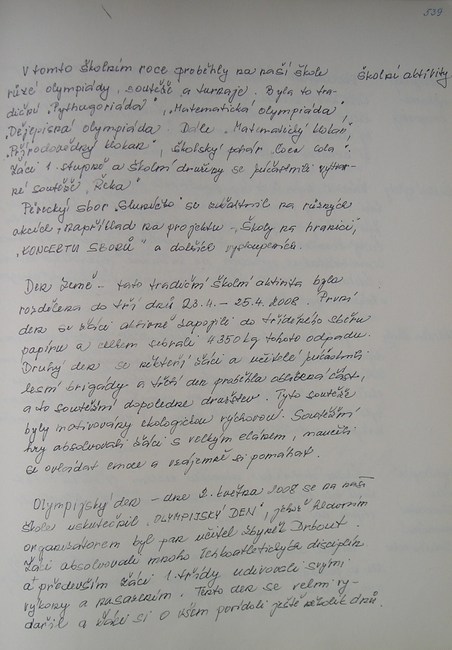 539
Školní aktivity
V tomto školním roce proběhly na naší škole
různé olympiády, soutěže a turnaje. Byla to tra-
diční „Pythagoriáda", „Matematická olympiáda",
„Dějepisná olympiáda". Dále „Matematický klokan",
„Přírodovědný klokan", školský pohár „Coca cola".
Žáci 1. stupně a školní družiny se zúčastnili výtvar-
né soutěže „Řeka".
Pěvecký sbor „Sluníčko" se zúčastnil na různých
akcích, například na projektu „Školy na hranici",
„KONCERTU SBORŮ" a dalších vystoupeních.
Den Země - tato tradiční školní aktivita byla
rozdělena do tří dnů 23.4. - 25.4. 2008. První
den se žáci aktivně zapojili do tříděného sběru
papíru a celkem sebrali 4350 kg tohoto odpadu.
Druhý den se někteří žáci a učitelé zúčastnili
lesní brigády a třetí den proběhla oblíbená část,
a to soutěžní dopoledne družstev. Tyto soutěže
byly motivovány ekologickou výchovou. Soutěžní
hry absolvovali žáci s velkým elánem, naučili
se ovládat emoce a vzájemně si pomáhat.
Olympijský den - dne 2. května 2008 se na naší
škole uskutečnil „OLYMPIJSKÝ DEN", jehož hlavním
organizátorem byl pan učitel Zbyněk Drbout.
Žáci absolvovali mnoho lehkoatletických disciplín
a především žáci 1. třídy udivovali svými
výkony a nasazením. Tento den se velmi vy-
dařil a žáci si o všem povídali ještě několik dnů.